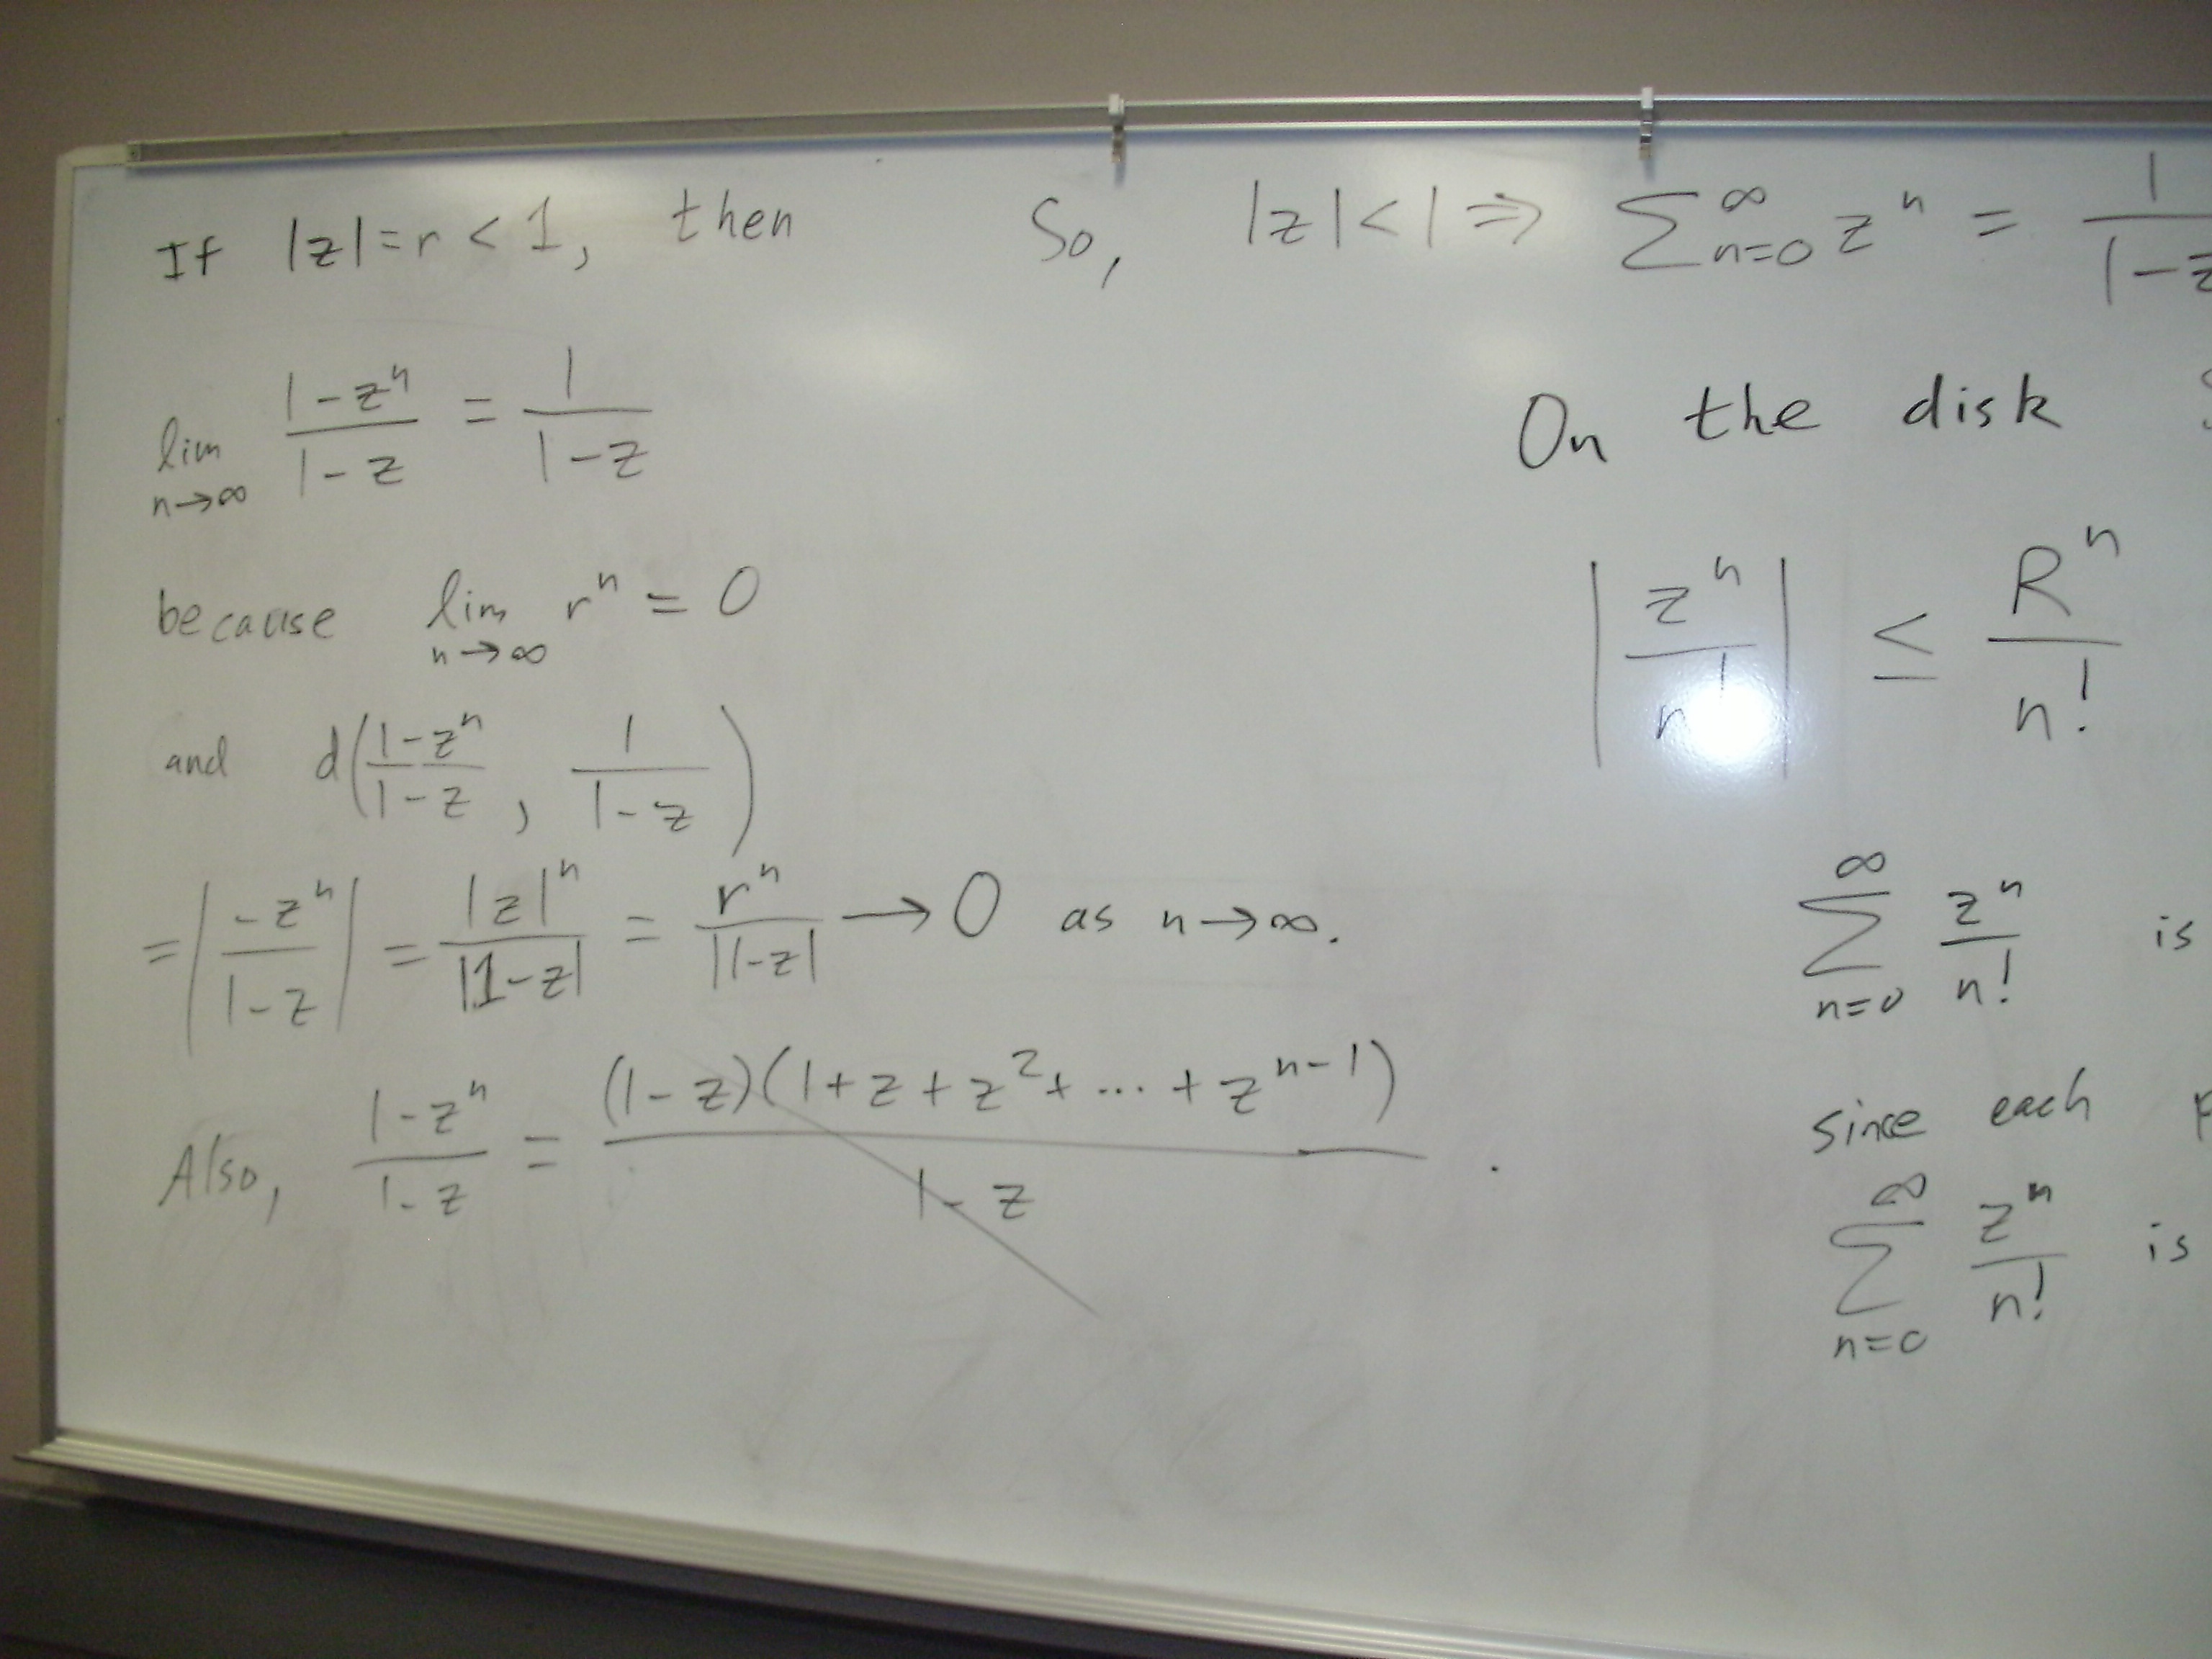 If |z| = r < 1, then
lim n→∞ (1-zⁿ)/(1-z) = 1/(1-z)
because lim n→∞ rⁿ = 0
and d( (1-zⁿ)/(1-z) , 1/(1-z) )
= |(-zⁿ)/(1-z)| = |z|ⁿ/|1-z| = rⁿ/|1-z| → 0 as n→∞.
Also, (1-zⁿ)/(1-z) = (1-z)(1+z+z²+...+zⁿ⁻¹)/(1-z) .
So, |z|<1 ⇒ ∑_{n=0}^{∞} zⁿ = 1/(1-z
On the disk
|zⁿ/n!| ≤ Rⁿ/n!
∑_{n=0}^{∞} zⁿ/n! is
since each
∑_{n=0}^{∞} zⁿ/n! is